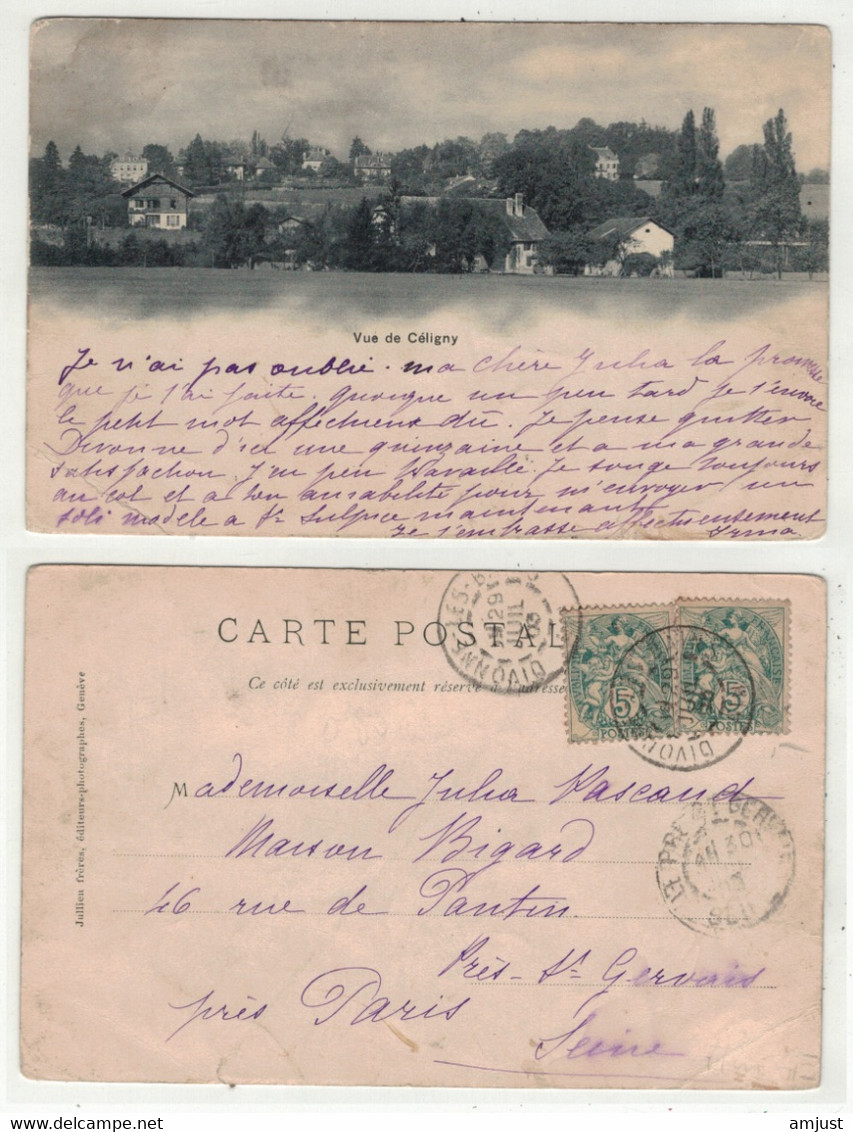 Vue de Céligny
Je n'ai pas oublié. ma chère Julia la promesse
que je t'ai faite. quoique un peu tard je t'envoie
le petit mot affectueux dû. Je pense quitter
Divonne d'ici une quinzaine et a ma grande
satisfaction. J'ai peu travaillé. Je songe toujours
au col et a ton amabilité pour m'envoyer un
joli modèle a St Sulpice maintenant
Je t'embrasse affectueusement
Irma.
CARTE POSTAL
Ce côté est exclusivement réservé à l'adresse
DIVONNE-LES-B
29
JUIL
03
5c
POSTES
5c
POSTES
DIVONNE
Mademoiselle Julia Pascaud
Maison Bigard
46 rue de Pantin
Près-St Gervais
près Paris
Seine
LE PRE-ST-GERVAIS
30
03
SEI
Jullien frères, éditeurs-photographes, Genève
www.delcampe.net
amjust